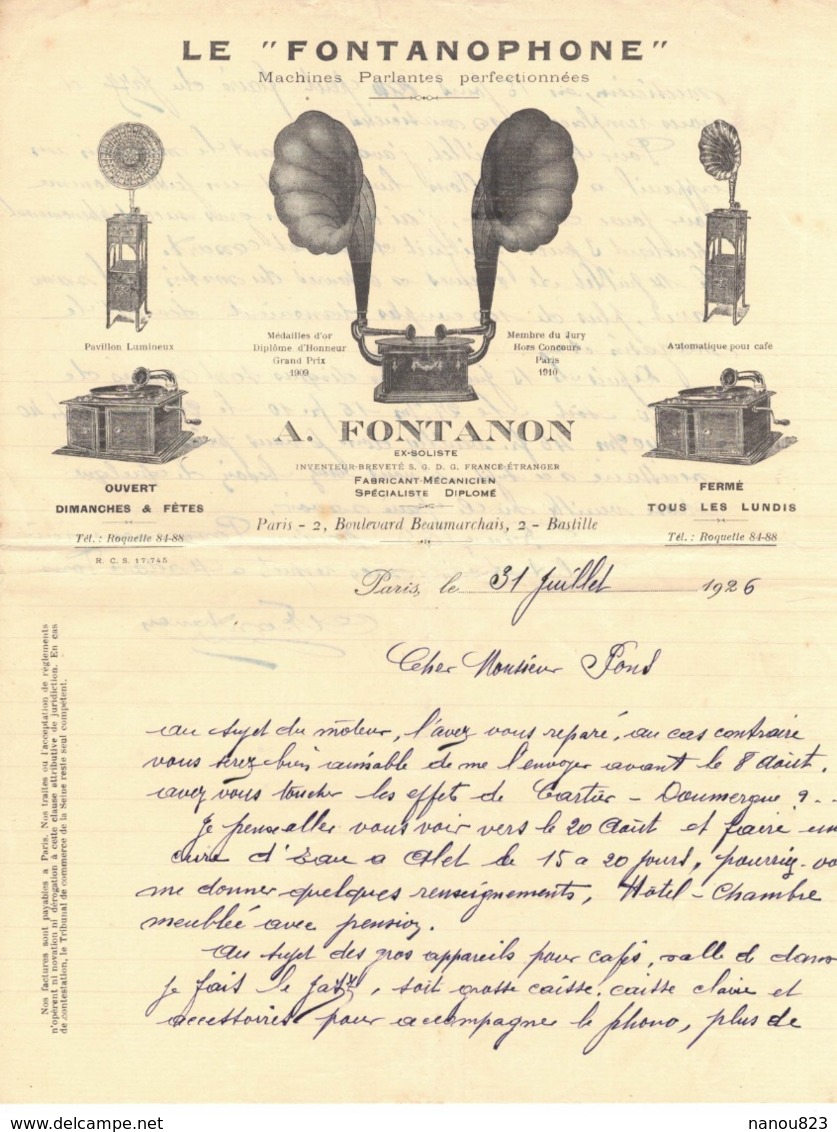 LE "FONTANOPHONE"
Machines Parlantes perfectionnées
Pavillon Lumineux
Médailles d'or
Diplôme d'Honneur
Grand Prix
1909
Membre du Jury
Hors Concours
Paris
1910
Automatique pour café
A. FONTANON
EX-SOLISTE
INVENTEUR-BREVETÉ S. G. D. G. FRANCE-ÉTRANGER
FABRICANT-MÉCANICIEN
SPÉCIALISTE DIPLOMÉ
OUVERT
DIMANCHES & FÊTES
Tél. : Roquette 84-88
R. C. S. 17.745
FERMÉ
TOUS LES LUNDIS
Tél. : Roquette 84-88
Paris - 2, Boulevard Beaumarchais, 2 - Bastille
Paris, le 31 Juillet 1926
Nos factures sont payables à Paris. Nos traites ou l'acceptation de règlements
n'opèrent ni novation ni dérogation à cette clause attributive de juridiction. En cas
de contestation, le Tribunal de commerce de la Seine reste seul compétent.
Cher Monsieur Pons
au sujet du moteur, l'avez vous reparé, au cas contraire
vous serez bien aimable de me l'envoyer avant le 8 Août.
avez vous toucher les effets de Cartier - Doumergue ? ..
Je pense aller vous voir vers le 20 Août et faire un
cure d'Eau a Alet de 15 a 20 jours, pourriez-vo
me donner quelques renseignements, Hôtel - Chambre
meublée avec pension.
Au sujet des gros appareils pour cafés, salle de dans
je fais le Jazz, soit grosse caisse, caisse claire et
accessoires pour accompagner le phono, plus de
nanou823